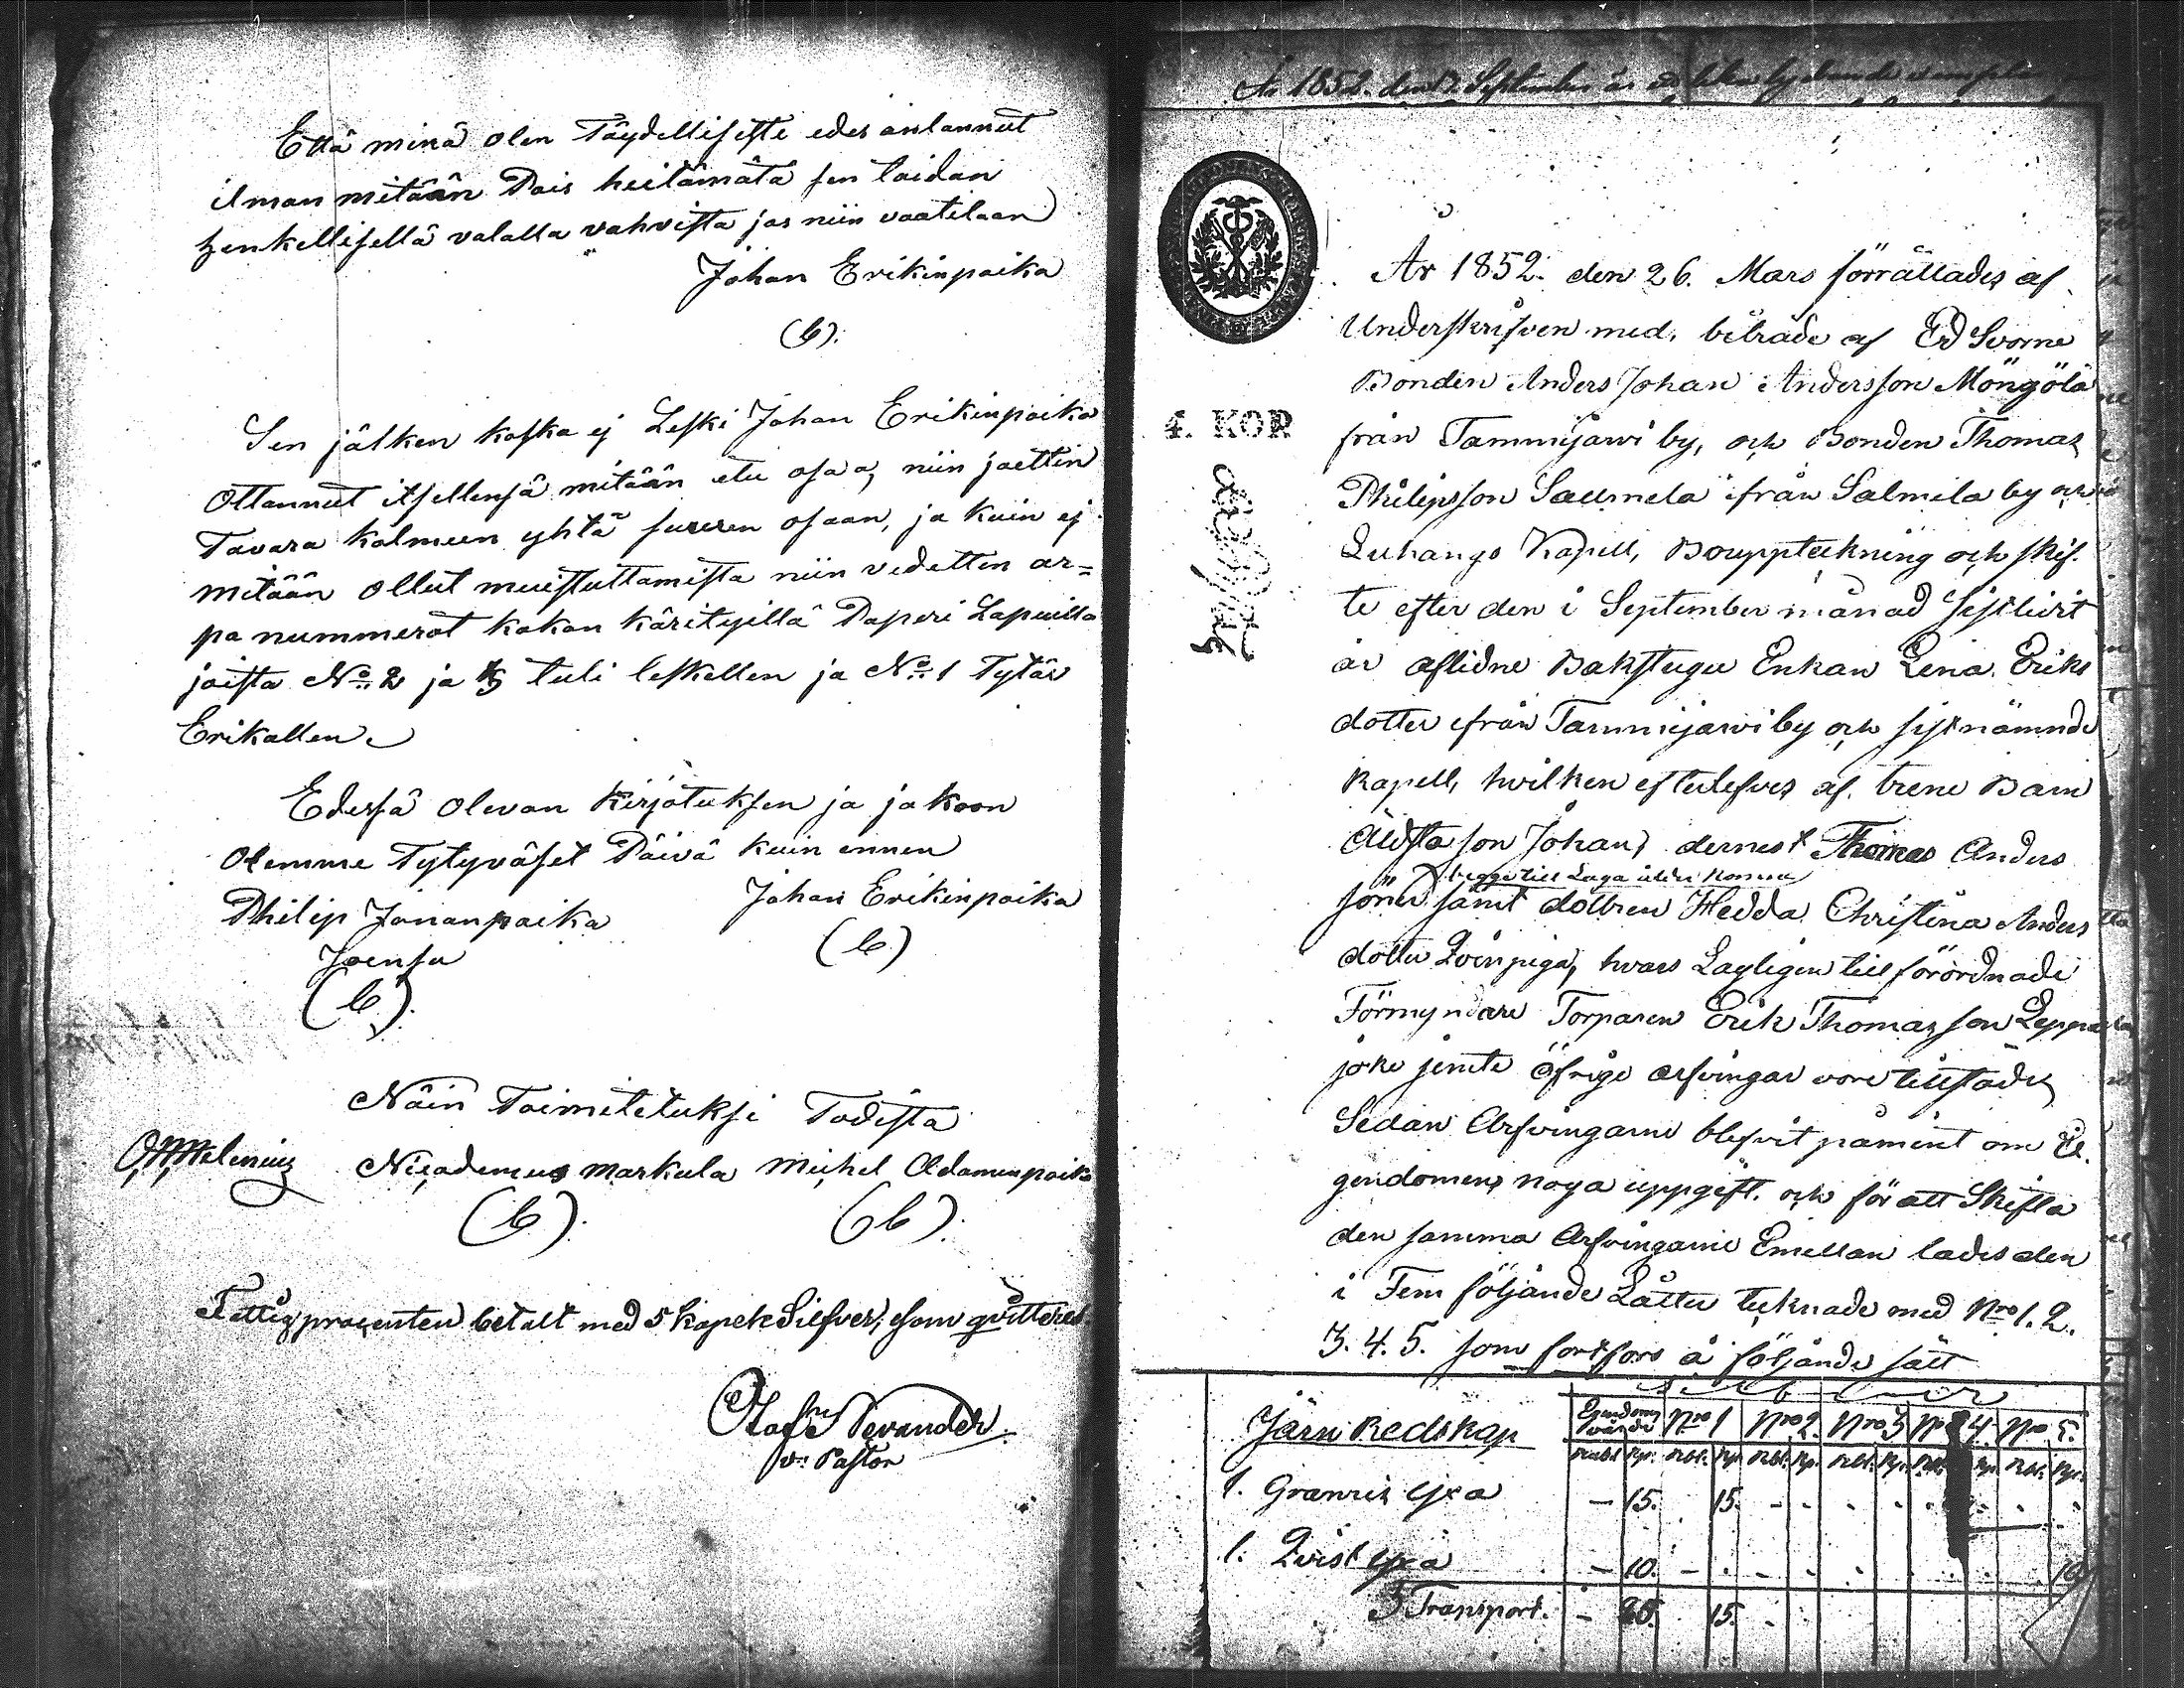 Että minä olen Täydellisesti edes andannut
ilman mitään Pois heitämätä sen taidan
henkellisellä valalla vahvista jos niin vaatilaan
Johan Erikinpoika
(b).
Sen jälken koska ej Leski Johan Erikinpoika
Ottannut itsellensä mitään etu osaa, niin jaettin
Tavara kolmeen yhtä suuren osaan, ja kuin ej
mitään ollut muistuttamista niin vedetten ar=
pa nummerot kokon käärityillä Paperi Lapuilla
joista No: 2 ja 3 tuli leskellen ja No: 1 Tytär
Erikallen
Edessä olevan kirjotuksen ja jakoon
Olemme Tytyväset Päivä kuin ennen
Philip Jonanpoika Johan Erikinpoika
Joensu (b)
(b).
Näin Toimitetuksi Todista
Nicademus Markula Michel Adaminpoika
(b). (b).
Fattigprocenten betalt med 5 kopek Silfver, som qvitteras
Olof Nevander
v. Pastor
År 1852. den 2 September
År 1852. den 26. Mars förrättades af
Underskrifven med. biträde af Ed Svorne
Bonden Anders Johan Andersson Möngölä
från Tammijärvi by, och Bonden Thomas
4. KOP.
Philipsson Saumela ifrån Salmila by och
Luhango Kapell, Bouppteckning och skif.
te efter den i September månad sistlidit
år aflidne Bakstugu Enkan Lena Eriks
dotter ifrån Tammijärvi by och sistnämnde
Kapell, hvilken efterlefves af. trene Barn
Äldsta son Johan, dernest Thomas Anders
begge till Laga ålder komna
söner samt dottren Hedda Christina Anders
dotter Qvinpiga, hvars Lagligen till förordnade
Förmyndare Torparen Erik Thomasson Leppä
joki jemte öfrige arfvingar vore tillstädes
Sedan Arfvingarne blifvit påmint om E.
gendomens noga uppgift. och för att Skifta
den samma Arfvingarne Emellan lades den
i Fem följande Låtter tecknade med No 1. 2.
3. 4. 5. som fortfors å följande sätt
Järn Redskap Egendoms värde No 1 No 2. No 3 No 4. No 5.
Rubl Kp. Rbl. Kp. Rbl. Kp. Rbl. Kp. Rbl. Kp. Rbl. Kp.
1. Granris yxa - 15. 15. - - - - - - - -
1. Qvist yxa - 10. - - - - - - - - 10
Transport. - 25. 15. -